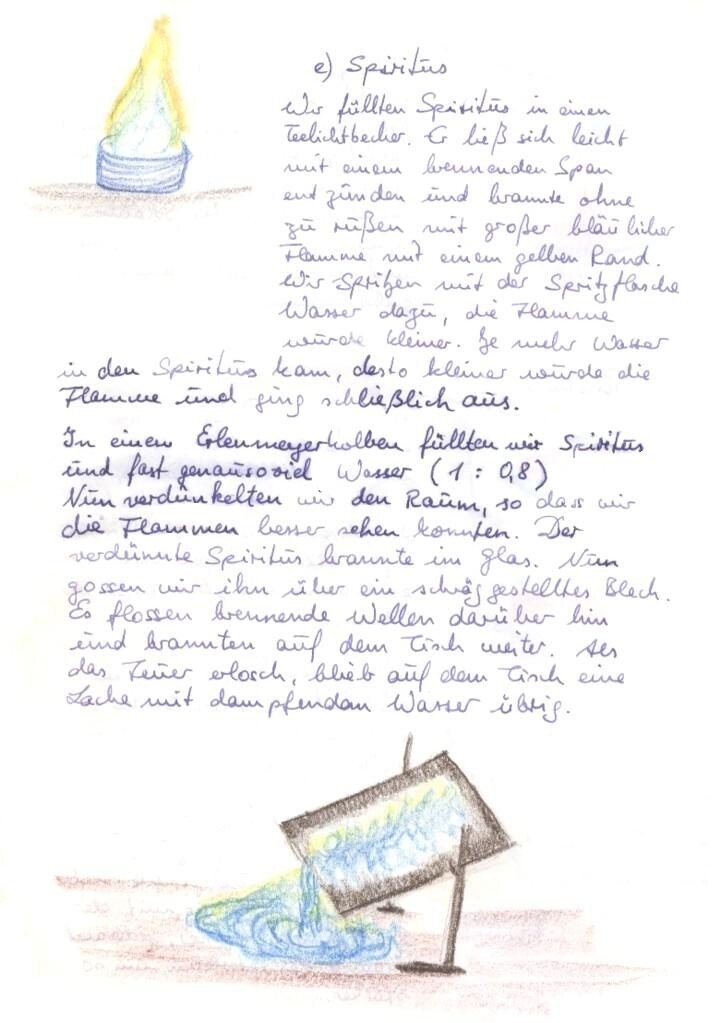 e) Spiritus
Wir füllten Spiritus in einen
Teelichtbecher. Er ließ sich leicht
mit einem brennenden Span
entzünden und brannte ohne
zu rußen mit großer bläulicher
Flamme mit einem gelben Rand.
Wir Spritzen mit der Spritzflasche
Wasser dazu, die Flamme
wurde kleiner. Je mehr Wasser
in den Spiritus kam, desto kleiner wurde die
Flamme und ging schließlich aus.
In einem Erlenmeyerkolben füllten wir Spiritus
und fast genausoviel Wasser (1 : 0,8)
Nun verdunkelten wir den Raum, so dass wir
die Flammen besser sehen konnten. Der
verdünnte Spiritus brannte im Glas. Nun
gossen wir ihn über ein schräggestelltes Blech.
Es flossen brennende Wellen darüber hin
und brannten auf dem Tisch weiter. Als
das Feuer erlosch, blieb auf dem Tisch eine
Lache mit dampfendem Wasser übrig.